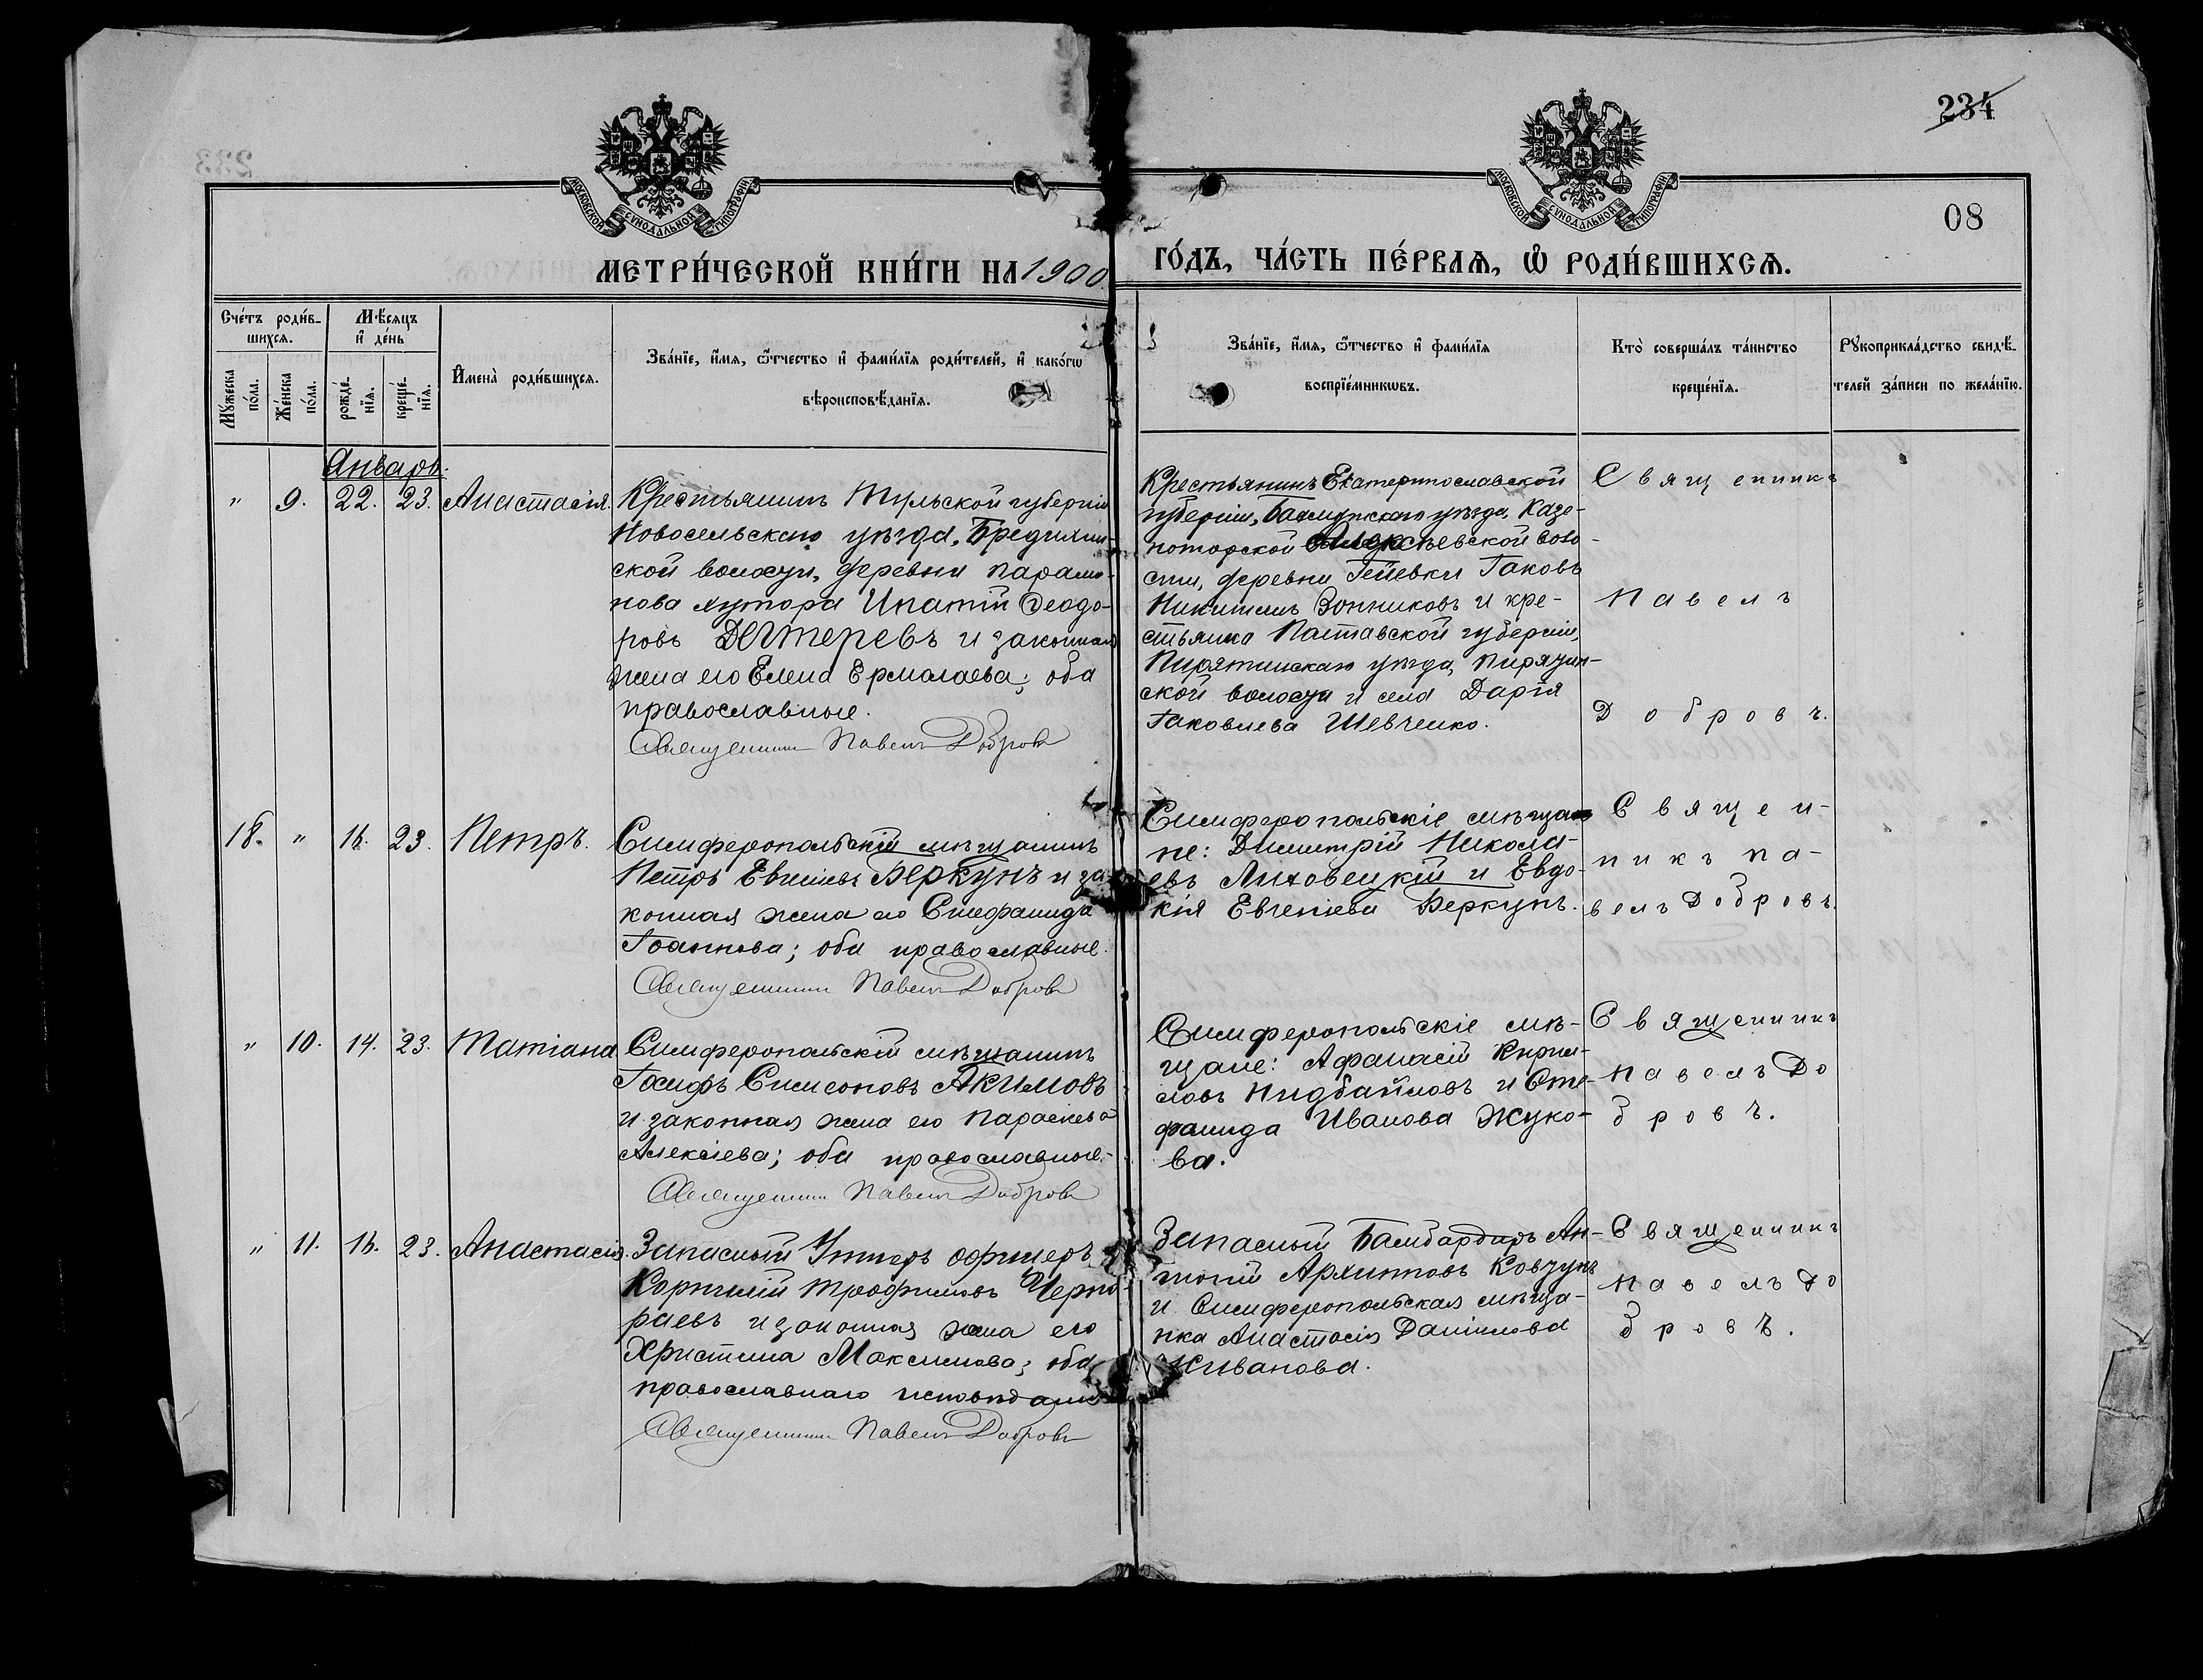 234
08
МОСКОВСКОЙ СѴНОДАЛЬНОЙ ТИПОГРАФІИ
МОСКОВСКОЙ СѴНОДАЛЬНОЙ ТИПОГРАФІИ
МЕТРИ́ЧЕСКОЙ КНИ́ГИ НА 1900 ГО́ДЪ, ЧА́СТЬ ПЕ́РВАѦ, Ѽ РОДИ́ВШИХСѦ.
Сче́тъ роди́в-
шихсѧ.
Мꙋ́жеска по́ла.
Же́нска по́ла.
Мѣ́сѧцъ и҆ де́нь
рожде́-
нїѧ.
креще́-
нїѧ.
И҆мена̀ роди́вшихсѧ.
Зва́нїе, и҆́мѧ, ѻ҆́тчество и҆ фами́лїѧ роди́телей, и҆ како́гѡ
вѣроисповѣ́данїѧ.
Зва́нїе, и҆́мѧ, ѻ҆́тчество и҆ фами́лїѧ
воспрїе́мникѡвъ.
Кто̀ соверша́лъ та́инство
креще́нїѧ.
Рꙋкоприкла́дство свидѣ́-
телей за́писи по жела́нїю.
Январь.
" 9. 22. 23. Анастасія.
Крестьянинъ Тульской губерніи
Новосельскаго уѣзда, Бредихин-
ской волости, деревни Парамо-
нова хутора Ипатій Ѳеодо-
ровъ Дегтеревъ и законная
жена его Елена Ермолаева; оба
православные.
Священникъ Павелъ Добровъ
Крестьянинъ Екатеринославской
губерніи, Бахмутскаго уѣзда, Казе-
ноторской Алексѣевской воло-
сти, деревни Іаковъ
Никитинъ Зонниковъ и кре-
стьянка Полтавской губерніи,
Пирятинскаго уѣзда, Пирятин-
ской волости и села Дарія
Іаковлева Шевченко.
Священникъ
Павелъ
Добровъ.
18. " 16. 23. Петръ.
Симферопольскій мѣщанинъ
Петръ Евгеніевъ Веркунъ и за-
конная жена его Стефанида
Іоаннова; оба православные.
Священникъ Павелъ Добровъ
Симферопольскіе мѣща-
не: Димитрій Никола-
евъ Лиховецкій и Евдо-
кія Евгеніева Веркунъ.
Священ-
никъ Па-
велъ Добровъ.
" 10. 14. 23. Татіана
Симферопольскій мѣщанинъ
Іосифъ Симеоновъ Акимовъ
и законная жена его Параскева
Алексіева; оба православные.
Священникъ Павелъ Добровъ
Симферопольскіе мѣ-
щане: Афанасій Кирил-
ловъ Пидбайловъ и Сте-
фанида Иванова Жуко-
ва.
Священникъ
Павелъ До
бровъ.
" 11. 16. 23. Анастасія.
Запасный Унтеръ офицеръ
Корнилій Трофимовъ Черно-
раевъ и законная жена его
Христина Максимова; оба
православнаго исповѣданія
Священникъ Павелъ Добровъ
Запасный Бамбардиръ Ан-
тоній Архиповъ Ковзунъ
и Симферопольская мѣща-
нка Анастасія Даніилова
Живанова.
Священникъ
Павелъ До
бровъ.